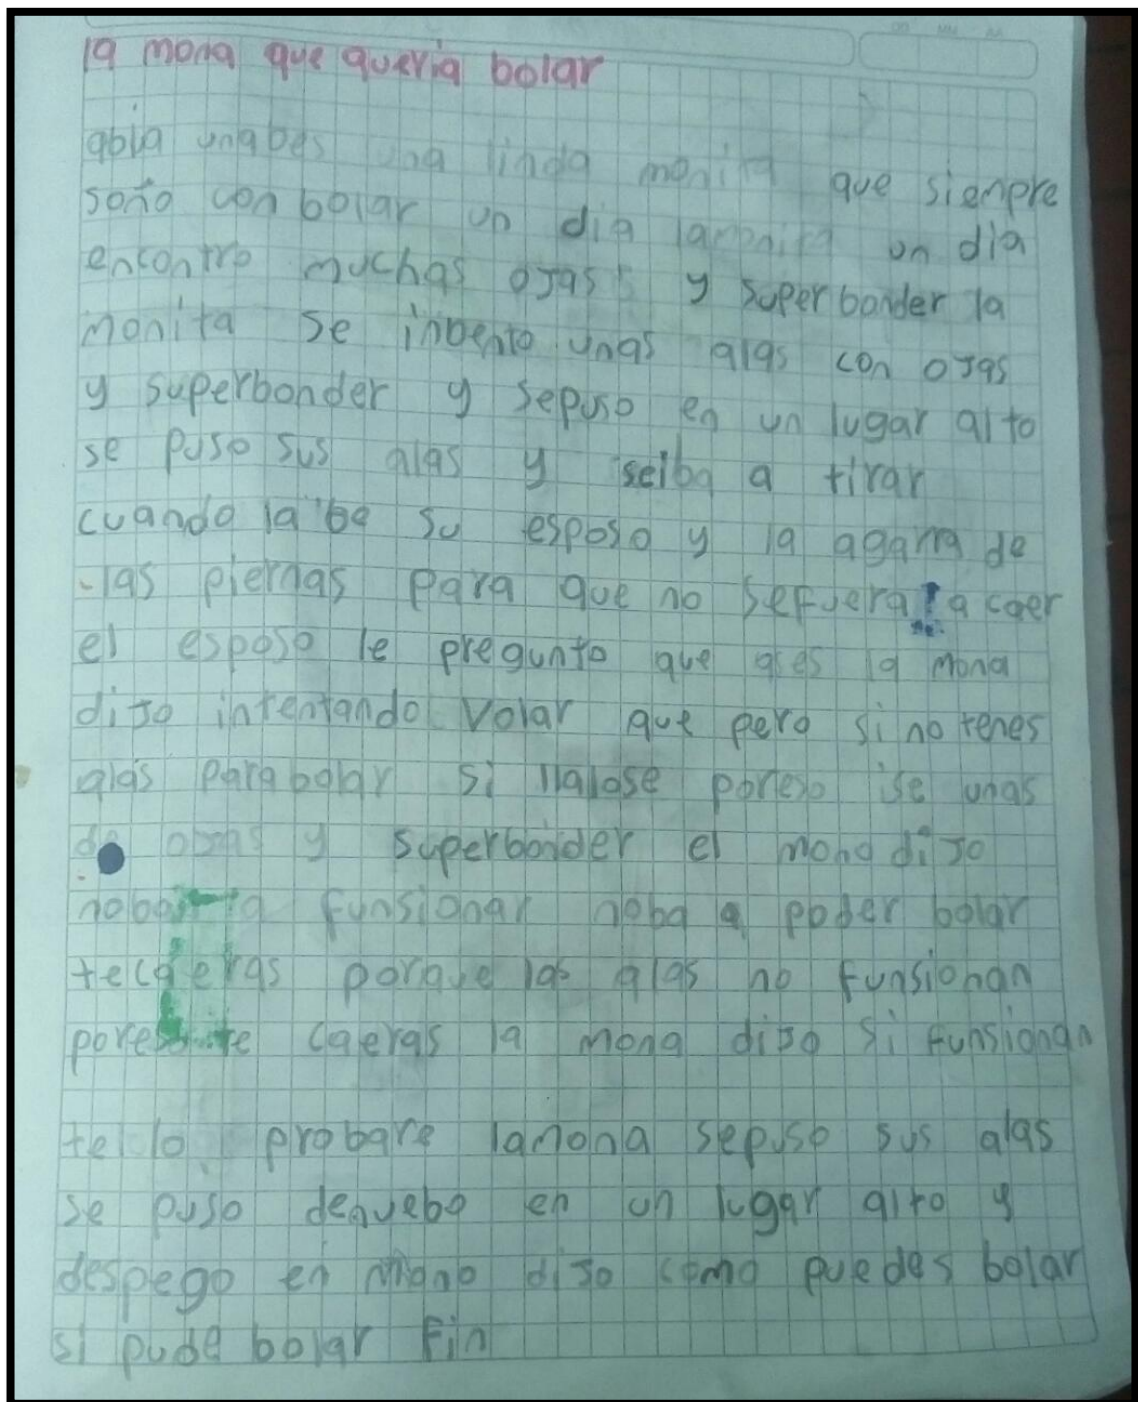 la mona que queria bolar
abia unabes una linda monita que siempre
soño con bolar un dia lamonita un dia
encontro muchas ojas y superbonder la
monita se inbento unas alas con ojas
y superbonder y sepuso en un lugar alto
se puso sus alas y seiba a tirar
cuando la be su esposo y la agarra de
las piernas para que no sefuera a caer
el esposo le pregunto que ases la mona
dijo intentando volar que pero si no tenes
alas parabolar si llalose poreso ise unas
de ojas y superbonder el mono dijo
funsionar noba a poder bolar
tecaeras porque las alas no funsionan
caeras la mona dijo si funsionan
te lo probare lamona sepuso sus alas
se puso denuebo en un lugar alto y
despego en mono dijo como puedes bolar
si pude bolar Fin